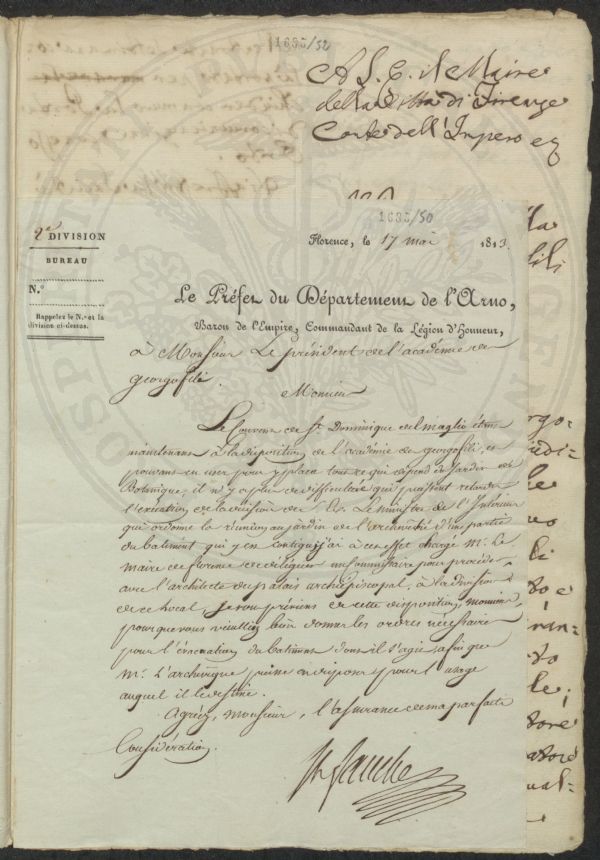 1695/52
A S. E. il Maire
della Città di Firenze
Conte dell'Impero &
1695/50
2e DIVISION
BUREAU
N.°
Rappelez le N.° et la
division ci-dessus.
Florence, le 17 mai 1813.
Le Préfet du Département de l'Arno,
Baron de l'Empire, Commandant de la Légion d'Honneur,
à Monsieur Le président de l'académie des
georgofili.
Monsieur
Le Couvent de St. Dominique del maglio étant
maintenant à la disposition de l'académie des georgofili, et
pouvant en user pour y placer tout ce qui dépend du Jardin de
Botanique, il n'y a plus de difficultés qui puissent retarder
l'exécution de la décision de S. Ex. Le ministre de l'Intérieur
qui ordonne la réunion au jardin de l'archevêché d'une partie
du batiment qui y est contigu; j'ai à cet effet chargé Mr. le
maire de florence de déléguer un Commissaire pour procéder
avec l'architecte du palais archiépiscopal, à la division
de ce local, je vous préviens de cette disposition, monsieur
pour que vous veuilliez bien donner les ordres nécessaires
pour l'évacuation du batiment dont il s'agit afin que
Mr. L'archevêque puisse en disposer pour l'usage
auquel il le destine.
Agréez, monsieur, l'assurance de ma parfaite
Considération.
lla
bili